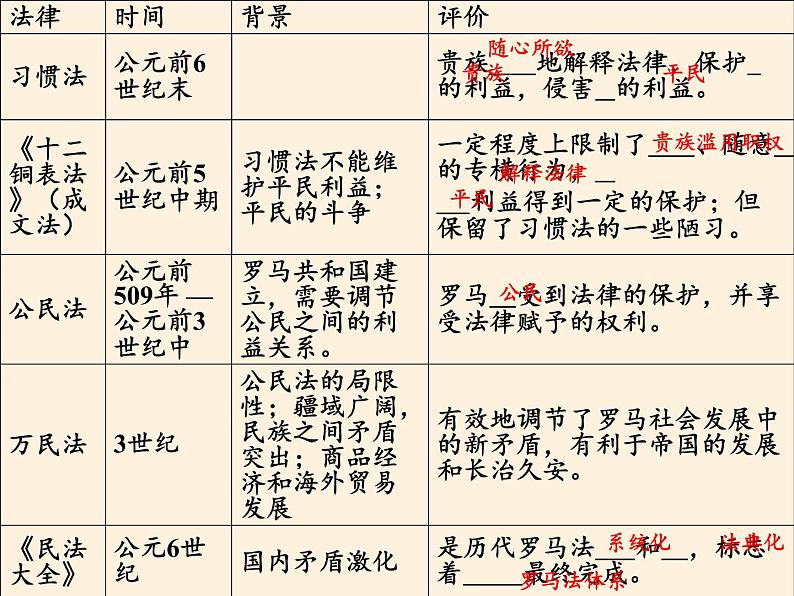 法律 时间 背景 评价
习惯法
公元前6
世纪末
随心所欲
贵族___地解释法律，保护_
贵族 平民
的利益，侵害_的利益。
《十二
铜表法
》（成
文法）
公元前5
世纪中期
习惯法不能维
护平民利益；
平民的斗争
一定程度上限制了____、随意_
贵族滥用职权
的专横行为，_
解释法律
平民
__利益得到一定的保护；但
保留了习惯法的一些陋习。
公民法
公元前
509年 —
公元前3
世纪中
罗马共和国建
立，需要调节
公民之间的利
益关系。
罗马__受到法律的保护，并享
公民
受法律赋予的权利。
万民法
3世纪
公民法的局限
性；疆域广阔，
民族之间矛盾
突出；商品经
济和海外贸易
发展
有效地调节了罗马社会发展中
的新矛盾，有利于帝国的发展
和长治久安。
《民法
大全》
公元6世
纪
国内矛盾激化
是历代罗马法___和__，标志
系统化 法典化
着_____最终完成。
罗马法体系